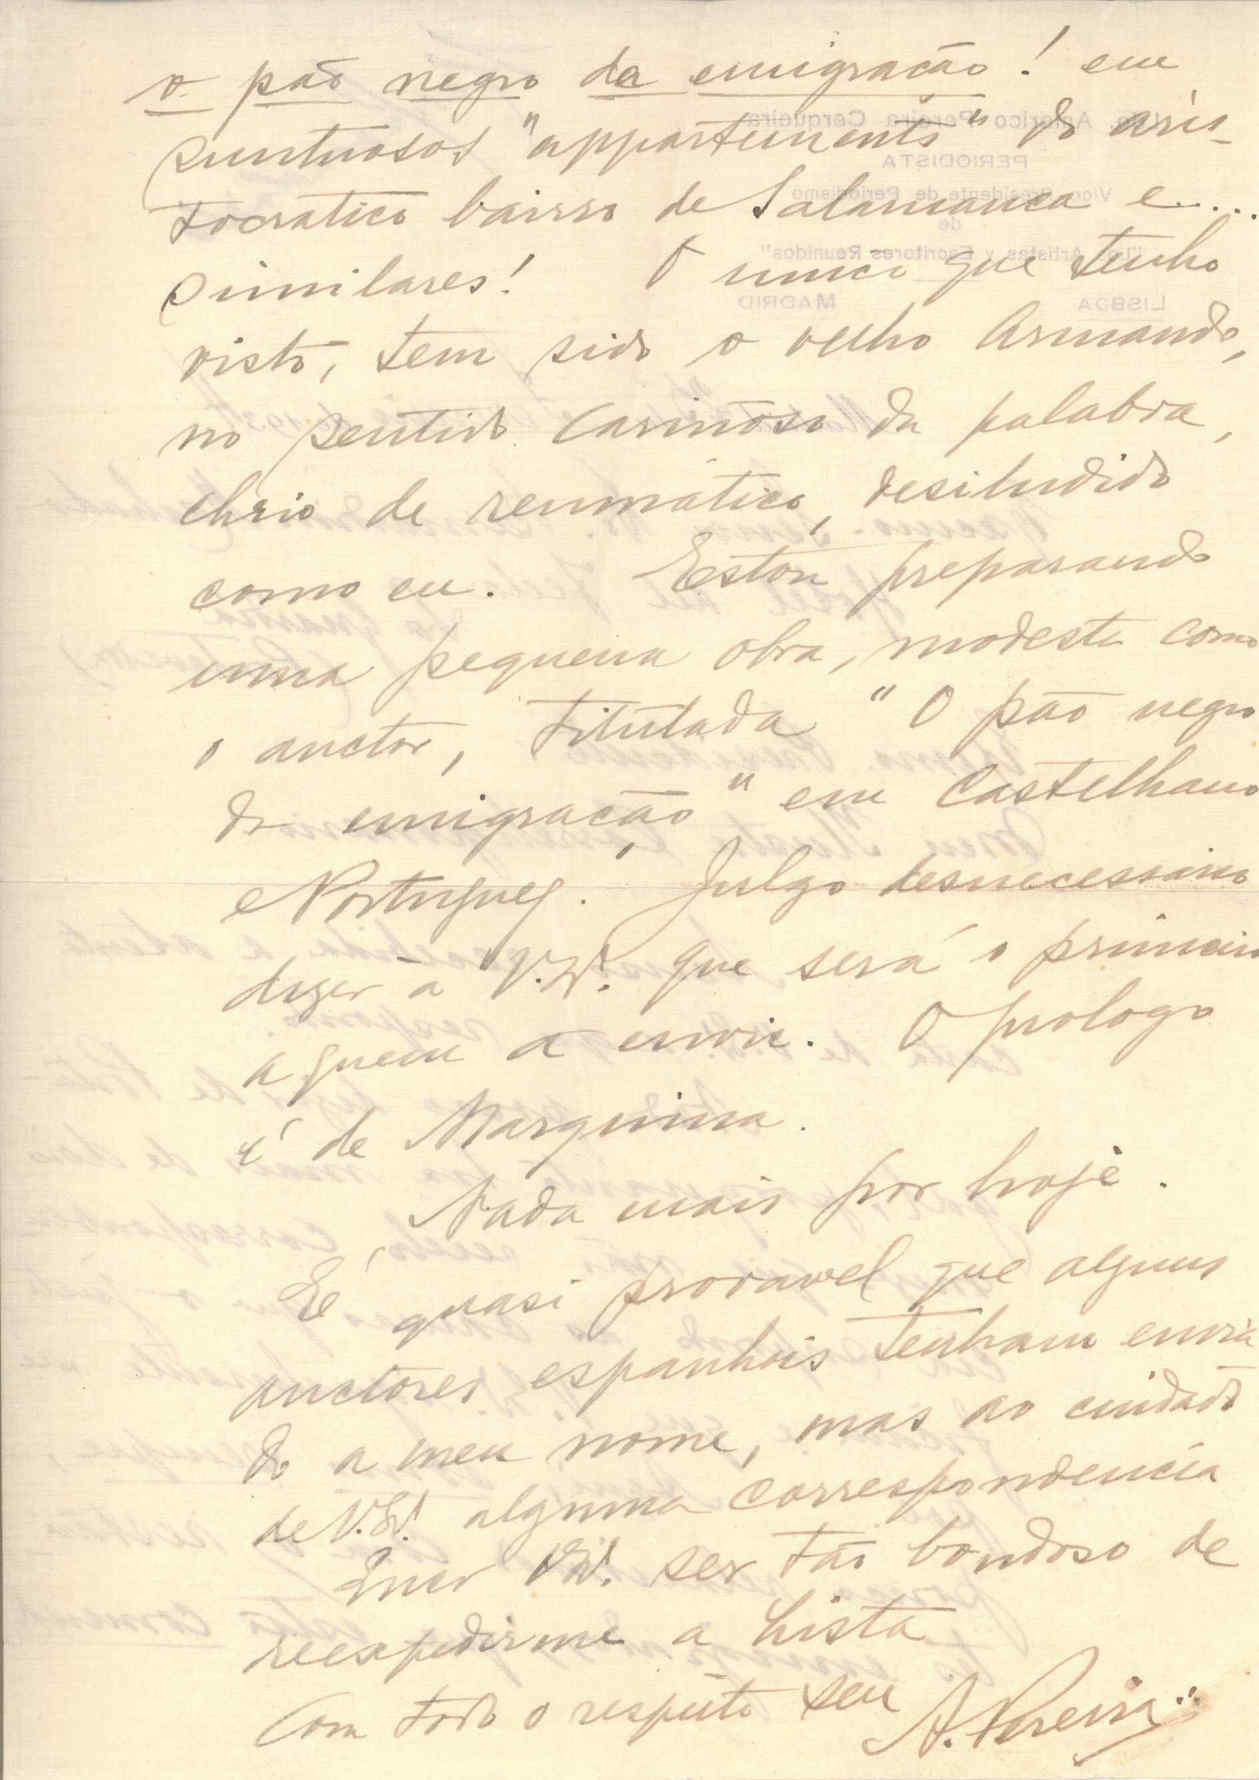 o pão negro da emigração! em
suntuosos "appartements" do aris-
tocratico bairro de Salamanca e....
similares! O unico que tenho
visto, tem sido o velho Armando,
no sentido cariñoso da palabra,
cheio de reumatico, desiludido
como eu. Estou preparando
uma pequena obra, modesta como
o auctor, titulada "O pão negro
da emigração" em Castelhano
e Portuguez. Julgo desnecessario
dizer a V. que será o primeiro
a quem a envie. O prologo
é de Marquina.
Nada mais por hoje.
É quasi provavel que alguns
auctores espanhois tenham envia
do a meu nome, mas ao cuidado
de alguma correspondencia
Quer ser tão bondoso de
reexpedirme a lista
Com todo o respeito seu A. Pereira